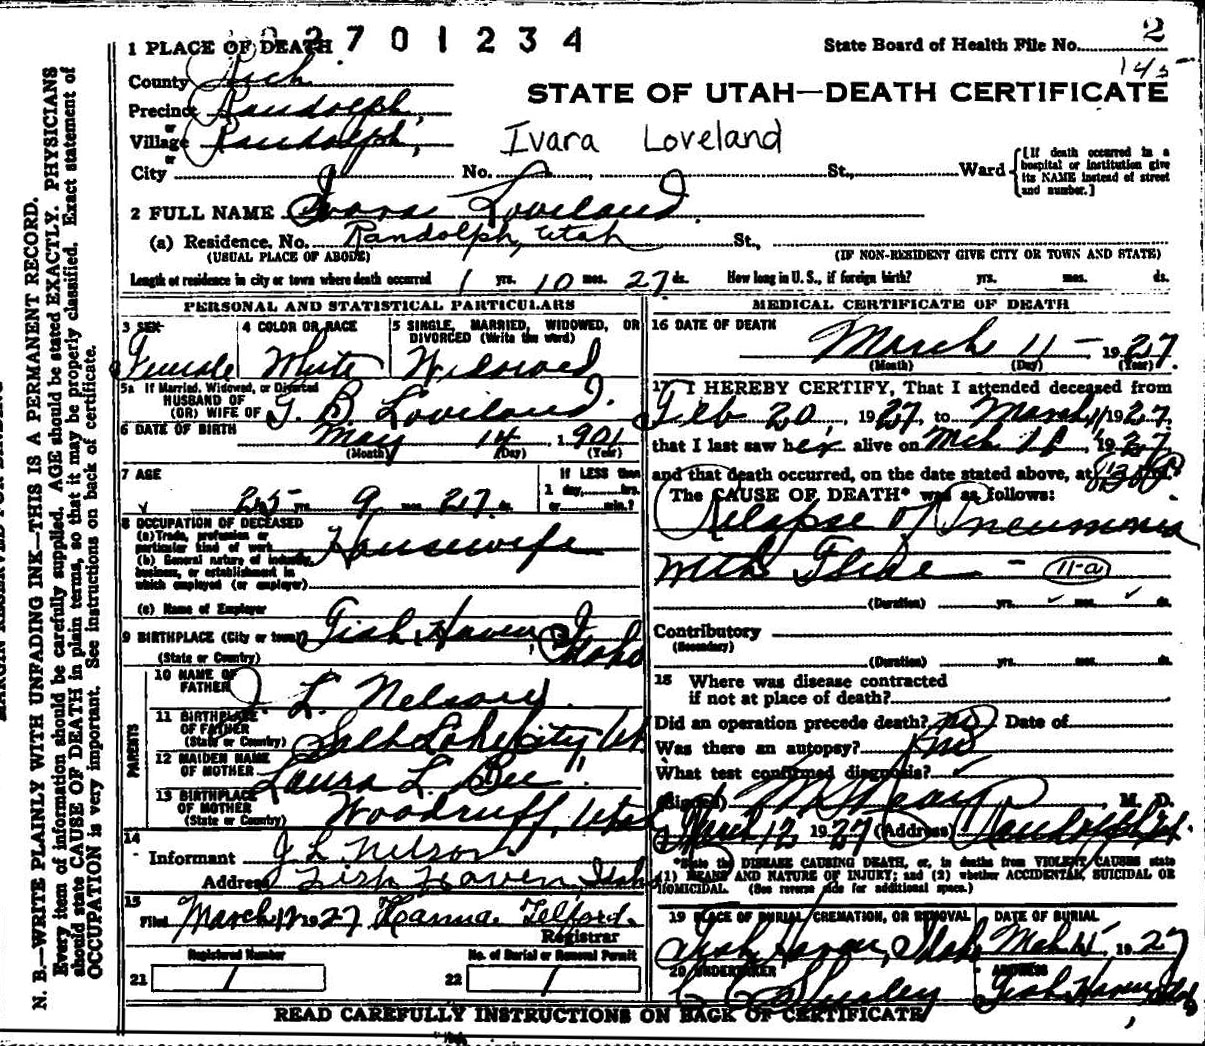 2701234
State Board of Health File No. 2
145
1 PLACE OF DEATH
County Rich
STATE OF UTAH—DEATH CERTIFICATE
Precinct Randolph
or
Village Randolph
Ivara Loveland
or
City No. St., Ward [If death occurred in a hospital or institution give its NAME instead of street and number.]
2 FULL NAME Ivara Loveland
(a) Residence, No. Randolph, Utah St.,
(USUAL PLACE OF ABODE) (IF NON-RESIDENT GIVE CITY OR TOWN AND STATE)
Length of residence in city or town where death occurred 1 yrs. 10 mos. 27 ds. How long in U. S., if foreign birth? yrs. mos. ds.
PERSONAL AND STATISTICAL PARTICULARS
3 SEX Female
4 COLOR OR RACE White
5 SINGLE, MARRIED, WIDOWED, OR DIVORCED (Write the word) Widowed
5a If Married, Widowed, or Divorced
HUSBAND OF
(OR) WIFE OF Loveland
6 DATE OF BIRTH May 14, 1901
(Month) (Day) (Year)
7 AGE 25 yrs. 9 mos. 27 ds.
If LESS than
1 day, hrs.
or min.?
8 OCCUPATION OF DECEASED
(a) Trade, profession or particular kind of work Housewife
(b) General nature of industry, business, or establishment in which employed (or employer)
(c) Name of Employer
9 BIRTHPLACE (City or town) Fish Haven, Idaho
(State or Country)
PARENTS
10 NAME OF FATHER J. L. Nelson
11 BIRTHPLACE OF FATHER (State or Country) Salt Lake City Ut
12 MAIDEN NAME OF MOTHER Laura L. Bee
13 BIRTHPLACE OF MOTHER (State or Country) Woodruff, Utah
14
Informant J L Nelson
Address Fish Haven, Idaho
15
Filed March 12 1927 Hanna Telford
Registrar
Registered Number
21 1
No. of Burial or Removal Permit
22 1
MEDICAL CERTIFICATE OF DEATH
16 DATE OF DEATH
March 11 - 1927
(Month) (Day) (Year)
17 I HEREBY CERTIFY, That I attended deceased from
Feb 20 1927 to March 11 1927
that I last saw her alive on Mch 1927
and that death occurred, on the date stated above, at
The CAUSE OF DEATH* was as follows:
Relapse of Pneumonia
with 11-a
(Duration) yrs. mos. ds.
Contributory
(Secondary)
(Duration) yrs. mos. ds.
18 Where was disease contracted
if not at place of death?
Did an operation precede death? no Date of
Was there an autopsy? no
What test confirmed diagnosis?
(Signed) M. D.
March 12, 1927 (Address) Randolph Ut.
*State the DISEASE CAUSING DEATH, or, in deaths from VIOLENT CAUSES state
(1) MEANS AND NATURE OF INJURY; and (2) whether ACCIDENTAL, SUICIDAL OR
HOMICIDAL. (See reverse side for additional space.)
19 PLACE OF BURIAL, CREMATION, OR REMOVAL DATE OF BURIAL
Fish Haven, Idaho Mch 15 1927
20 UNDERTAKER ADDRESS
Fish Haven
READ CAREFULLY INSTRUCTIONS ON BACK OF CERTIFICATE
N. B.—WRITE PLAINLY WITH UNFADING INK—THIS IS A PERMANENT RECORD.
Every item of information should be carefully supplied. AGE should be stated EXACTLY. PHYSICIANS
should state CAUSE OF DEATH in plain terms, so that it may be properly classified. Exact statement of
OCCUPATION is very important. See instructions on back of certificate.